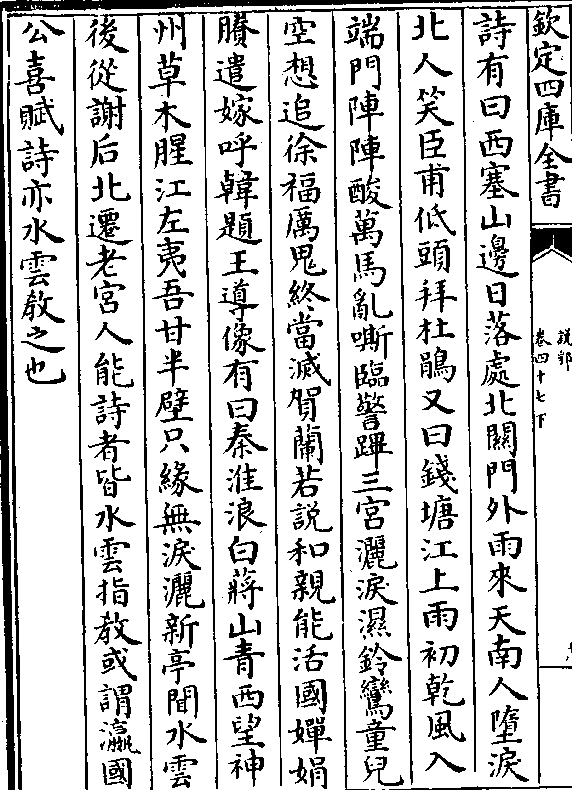 欽定四庫全書
說郛
卷四十七下
詩有曰西塞山邊日落處北關門外雨來天南人墮淚
北人笑臣甫低頭拜杜鵑又曰錢塘江上雨初乾風入
端門陣陣酸萬馬亂嘶臨警蹕三宮灑淚濕鈴鸞童兒
空想追徐福厲鬼終當滅賀蘭若説和親能活國嬋娟
賸遣嫁呼韓題王導像有曰秦淮浪白蔣山青西望神
州草木腥江左夷吾甘半壁只緣無淚灑新亭聞水雲
後從謝后北遷老宮人能詩者皆水雲指教或謂瀛國
公喜賦詩亦水雲教之也